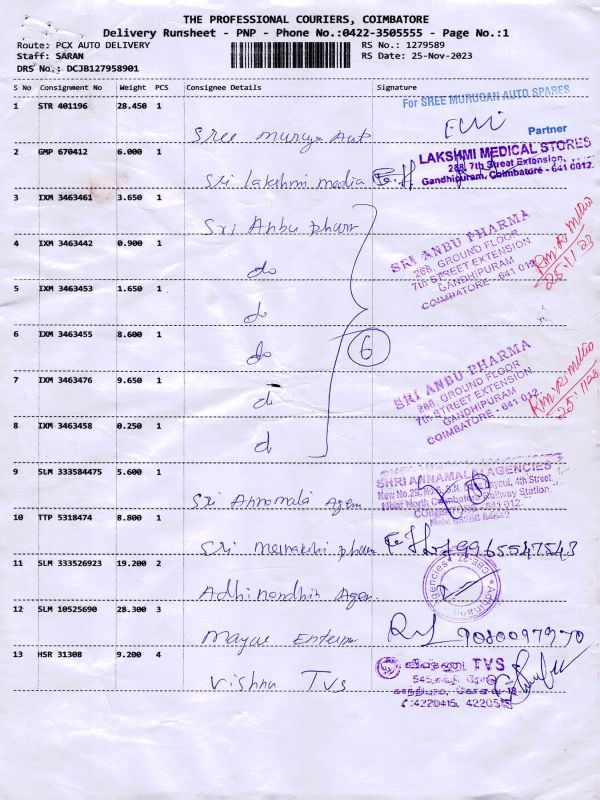 THE PROFESSIONAL COURIERS, COIMBATORE
Delivery Runsheet - PNP - Phone No.:0422-3505555 - Page No.:1
Route: PCX AUTO DELIVERY
RS No.: 1279589
Staff: SARAN
RS Date: 25-Nov-2023
DRS No.: DCJB127958901
S No Consignment No Weight PCS Consignee Details Signature
1 STR 401196 28.450 1
For SREE MURUGAN AUTO SPARES
Sree Muruga Aut
Partner
2 GMP 670412 6.000 1
LAKSHMI MEDICAL STORES
268, 7th Street Extension,
Gandhipuram, Coimbatore - 641 012.
Sri Lakshmi media
3 IXM 3463461 3.650 1
Sri Anbu pharm
4 IXM 3463442 0.900 1
do
SRI ANBU PHARMA
268, GROUND FLOOR
7th STREET EXTENSION
GANDHIPURAM
COIMBATORE - 641 012
25.11.23
5 IXM 3463453 1.650 1
do
6 IXM 3463455 8.600 1
do
6
7 IXM 3463476 9.650 1
d
SRI ANBU PHARMA
268, GROUND FLOOR
7th STREET EXTENSION
GANDHIPURAM
COIMBATORE - 641 012.
25.11.23
8 IXM 3463458 0.250 1
d
9 SLM 333584475 5.600 1
SHRI ANNAMALAI AGENCIES
4th Street,
Railway Station,
COIMBATORE - 641 012.
Sri Annamalai Agen
10 TTP 5318474 8.800 1
Sri meenakshi pharm
9965547543
11 SLM 333526923 19.200 2
Adhinandhin Agen.
12 SLM 10525690 28.300 3
Mayur Enterpr
9080097970
13 HSR 31308 9.200 4
Vishnu TVS
விஷ்ணு TVS